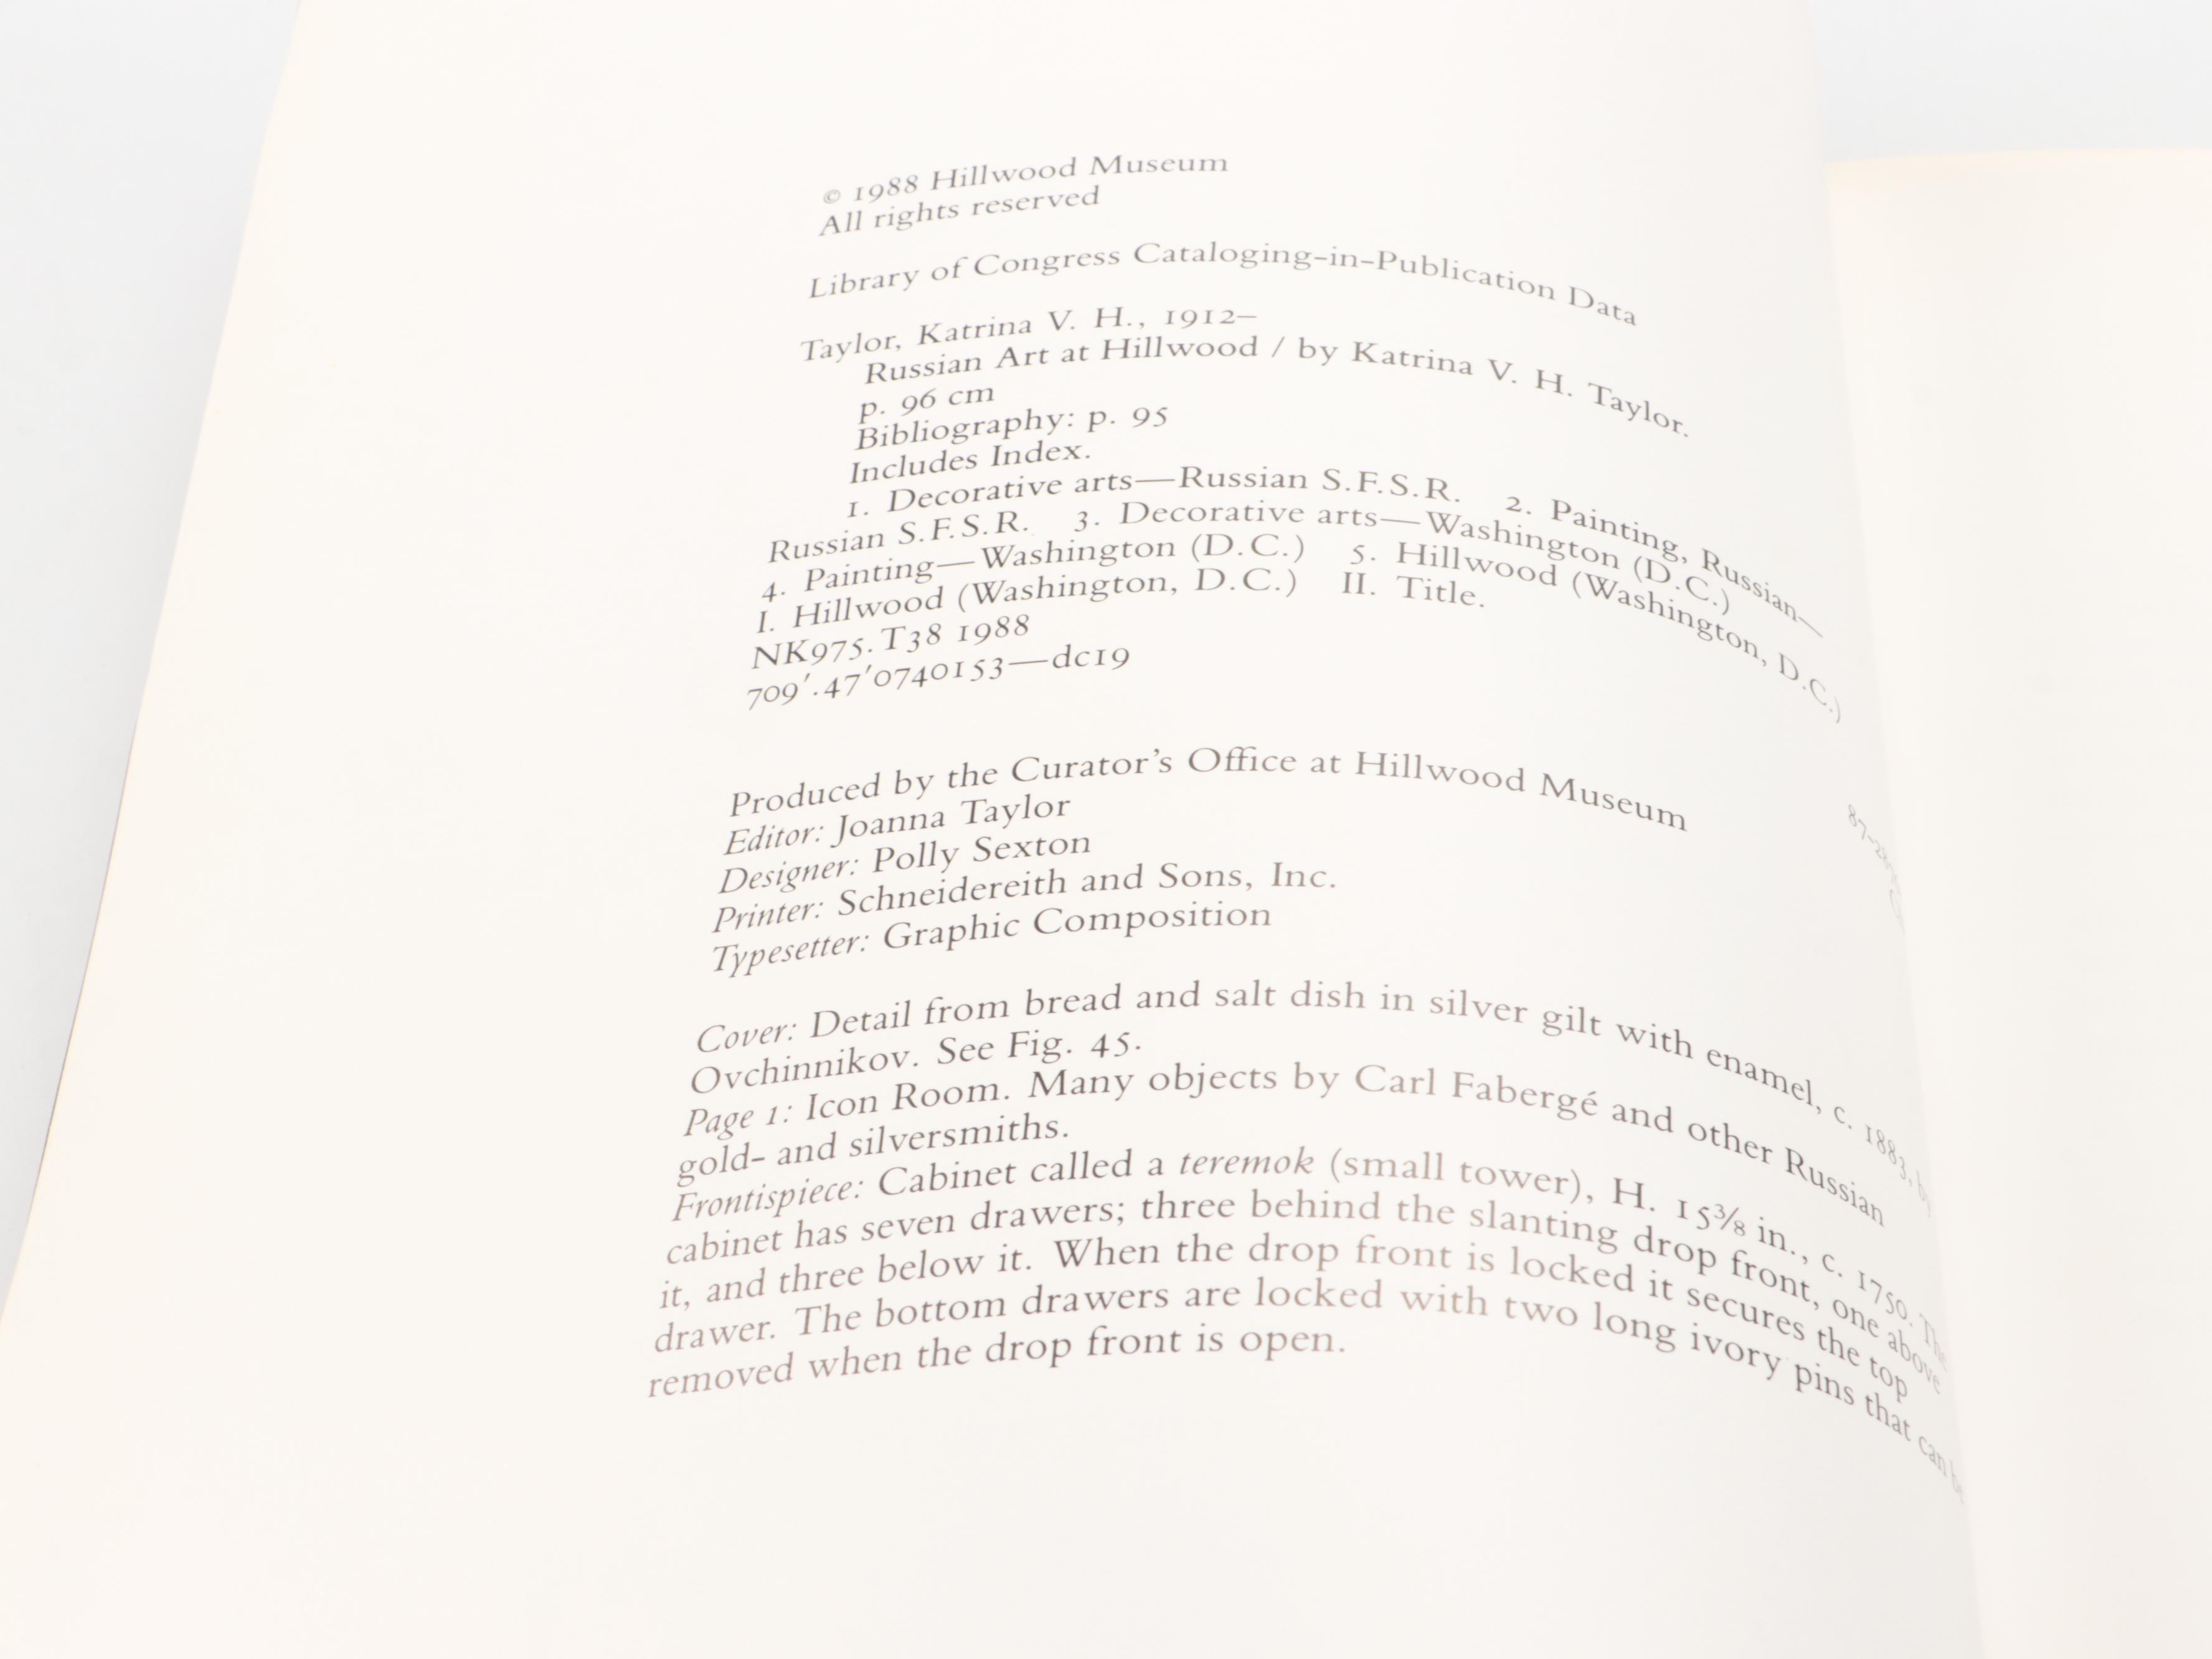 © 1988 Hillwood Museum
All rights reserved
Library of Congress Cataloging-in-Publication Data
Taylor, Katrina V. H., 1912–
Russian Art at Hillwood / by Katrina V. H. Taylor.
p. 96 cm
Bibliography: p. 95
Includes Index.
1. Decorative arts—Russian S.F.S.R. 2. Painting, Russian—
Russian S.F.S.R. 3. Decorative arts—Washington (D.C.)
4. Painting—Washington (D.C.) 5. Hillwood (Washington, D.C.)
I. Hillwood (Washington, D.C.) II. Title.
NK975.T38 1988
709'.47'0740153—dc19
Produced by the Curator's Office at Hillwood Museum
Editor: Joanna Taylor
Designer: Polly Sexton
Printer: Schneidereith and Sons, Inc.
Typesetter: Graphic Composition
Cover: Detail from bread and salt dish in silver gilt with enamel, c. 1883, by
Ovchinnikov. See Fig. 45.
Page 1: Icon Room. Many objects by Carl Fabergé and other Russian
gold- and silversmiths.
Frontispiece: Cabinet called a teremok (small tower), H. 15⅜ in., c. 1750. The
cabinet has seven drawers; three behind the slanting drop front, one above
it, and three below it. When the drop front is locked it secures the top
drawer. The bottom drawers are locked with two long ivory pins that can be
removed when the drop front is open.